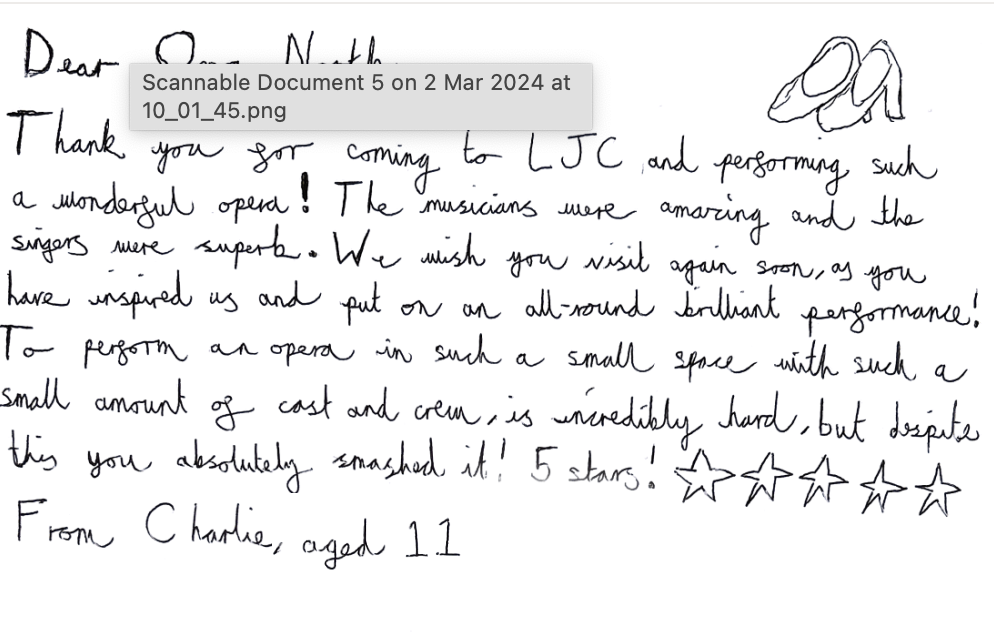 Dear
Scannable Document 5 on 2 Mar 2024 at
10_01_45.png
Thank you for coming to LJC and performing such
a wonderful opera! The musicians were amazing and the
singers were superb. We wish you visit again soon, as you
have inspired us and put on an all-round brilliant performance!
To perform an opera in such a small space with such a
small amount of cast and crew, is incredibly hard, but despite
this you absolutely smashed it! 5 stars!
From Charlie, aged 11